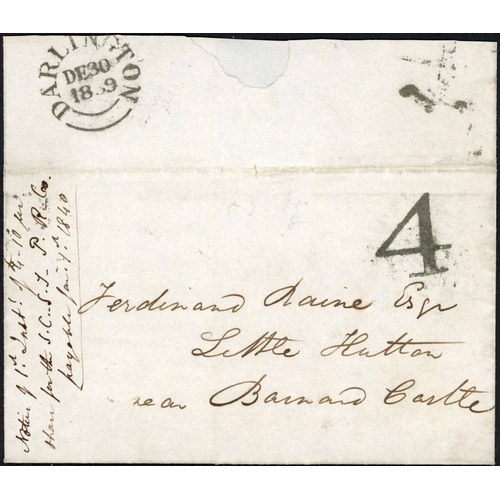 DARLINGTON
DE 30
1839
4
Ferdinand Raine Esqr
Little Hutton
near Barnard Castle
Notice of 1st Inst. of £4-10 per
share for the S. C. S. I. P. R. Co.
payable Jany 1840